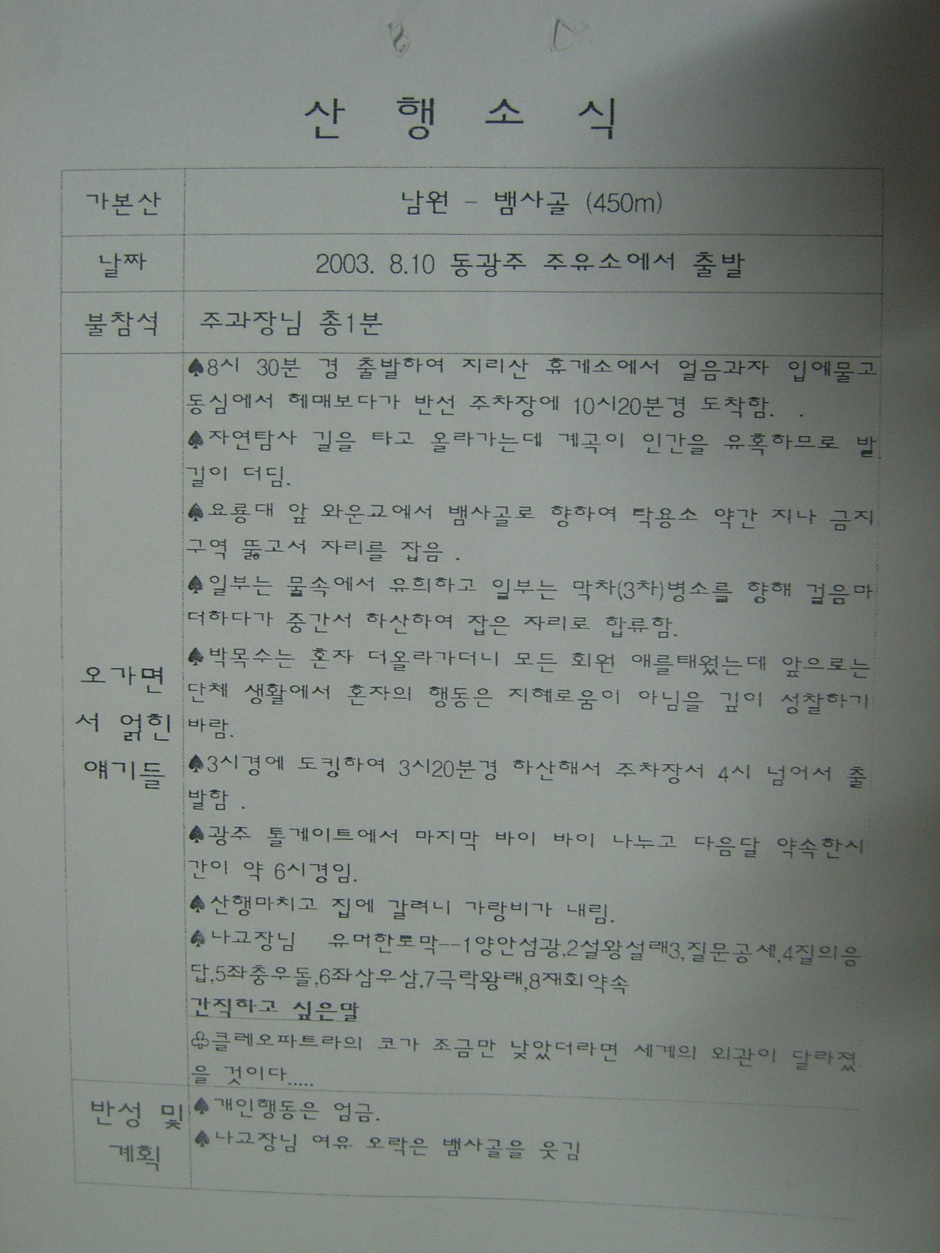 산 행 소 식
가본산 남원 - 뱀사골 (450m)
날짜 2003. 8.10 동광주 주유소에서 출발
불참석 주과장님 총1분
♠8시 30분 경 출발하여 지리산 휴게소에서 얼음과자 입에물고
동심에서 헤매보다가 반선 주차장에 10시20분경 도착함. .
♠자연탐사 길을 타고 올라가는데 계곡이 인간을 유혹하므로 발
길이 더딤.
♠요룡대 앞 와운교에서 뱀사골로 향하여 탁용소 약간 지나 금지
구역 뚫고서 자리를 잡음 .
♠일부는 물속에서 유희하고 일부는 막차(3차)병소를 향해 걸음마
더하다가 중간서 하산하여 잡은 자리로 합류함.
♠박목수는 혼자 더올라가더니 모든 회원 애를태웠는데 앞으로는
단체 생활에서 혼자의 행동은 지혜로움이 아님을 깊이 성찰하기
바람.
오가면
서 얽힌
얘기들
♠3시경에 도킹하여 3시20분경 하산해서 주차장서 4시 넘어서 출
발함 .
♠광주 톨게이트에서 마지막 바이 바이 나누고 다음달 약속한시
간이 약 6시경임.
♠산행마치고 집에 갈려니 가랑비가 내림.
♠나교장님 유머한토막--1양안섬광,2설왕설래3,질문공세,4질의응
답,5좌충우돌,6좌삼우삼,7극락왕래,8재회약속
간직하고 싶은말
♧클레오파트라의 코가 조금만 낮았더라면 세계의 외관이 달라졌
을 것이다.....
반성 및
계획
♠개인행동은 엄금.
♠나교장님 여유 오락은 뱀사골을 웃김